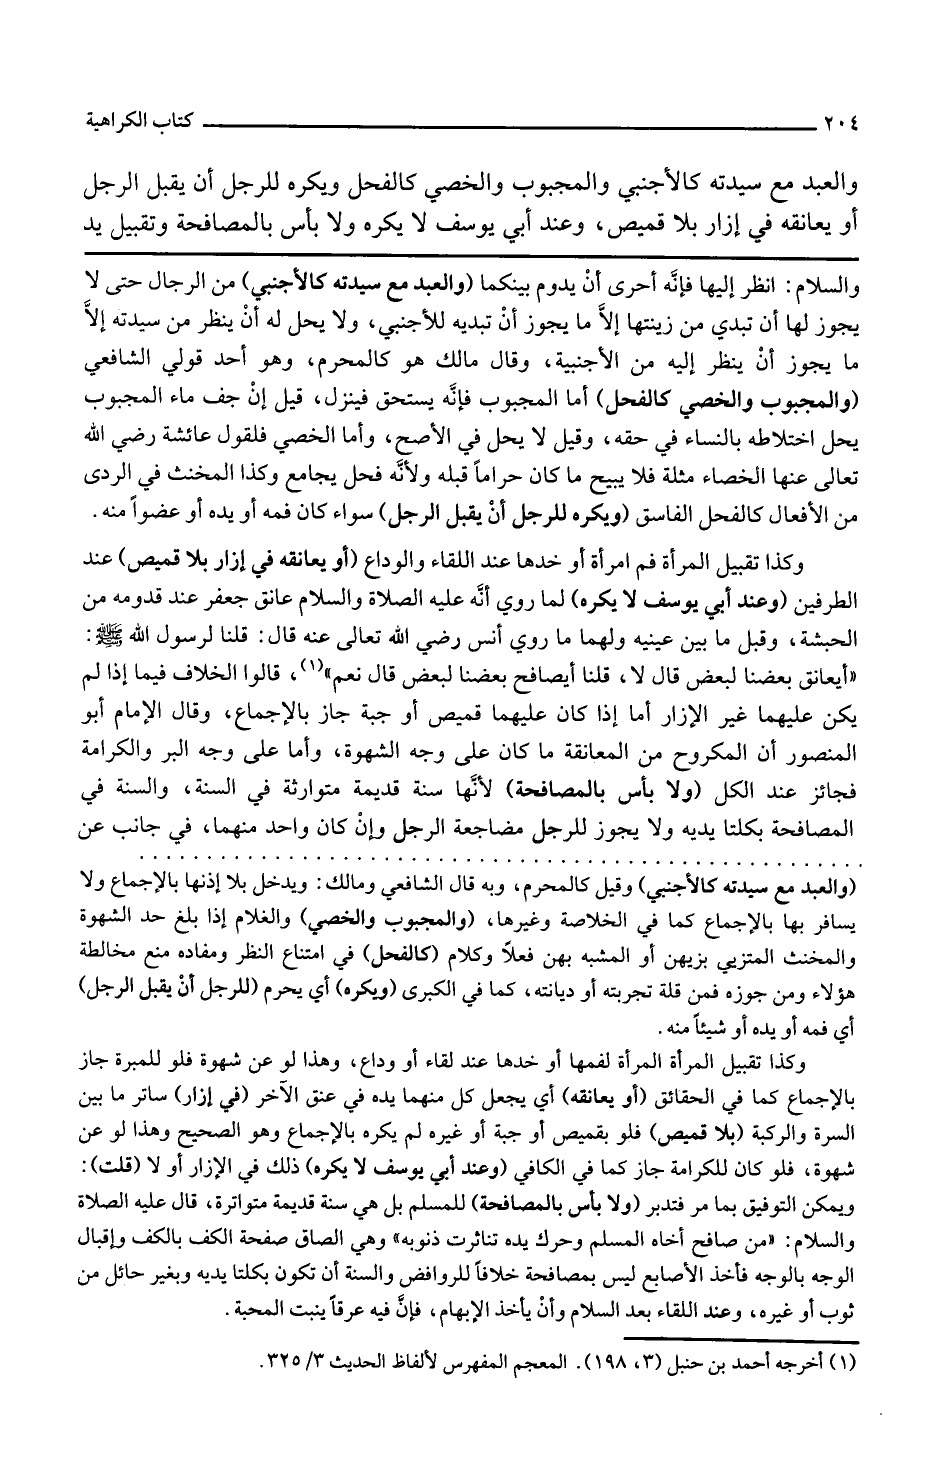 ٢٠٤ كتاب الكراهية
والعبد مع سيدته كالأجنبي والمجبوب والخصي كالفحل ويكره للرجل أن يقبل الرجل
أو يعانقه في إزار بلا قميص، وعند أبي يوسف لا يكره ولا بأس بالمصافحة وتقبيل يد
والسلام: انظر إليها فإنَّه أحرى أنْ يدوم بينكما (والعبد مع سيدته كالأجنبي) من الرجال حتى لا
يجوز لها أن تبدي من زينتها إلاَّ ما يجوز أنْ تبديه للأجنبي، ولا يحل له أنْ ينظر من سيدته إلاَّ
ما يجوز أنْ ينظر إليه من الأجنبية، وقال مالك هو كالمحرم، وهو أحد قولي الشافعي
(والمجبوب والخصي كالفحل) أما المجبوب فإنَّه يستحق فينزل، قيل إنْ جف ماء المجبوب
يحل اختلاطه بالنساء في حقه، وقيل لا يحل في الأصح، وأما الخصي فلقول عائشة رضي الله
تعالى عنها الخصاء مثلة فلا يبيح ما كان حراماً قبله ولأنَّه فحل يجامع وكذا المخنث في الردى
من الأفعال كالفحل الفاسق (ويكره للرجل أنْ يقبل الرجل) سواء كان فمه أو يده أو عضواً منه.
وكذا تقبيل المرأة فم امرأة أو خدها عند اللقاء والوداع (أو يعانقه في إزار بلا قميص) عند
الطرفين (وعند أبي يوسف لا يكره) لما روي أنَّه عليه الصلاة والسلام عانق جعفر عند قدومه من
الحبشة، وقبل ما بين عينيه ولهما ما روي أنس رضي الله تعالى عنه قال: قلنا لرسول الله ﷺ:
«أيعانق بعضنا لبعض قال لا، قلنا أيصافح بعضنا لبعض قال نعم»(١)، قالوا الخلاف فيما إذا لم
يكن عليهما غير الإزار أما إذا كان عليهما قميص أو جبة جاز بالإجماع، وقال الإمام أبو
المنصور أن المكروح من المعانقة ما كان على وجه الشهوة، وأما على وجه البر والكرامة
فجائز عند الكل (ولا بأس بالمصافحة) لأنَّها سنة قديمة متوارثة في السنة، والسنة في
المصافحة بكلتا يديه ولا يجوز للرجل مضاجعة الرجل وإنْ كان واحد منهما، في جانب عن
(والعبد مع سيدته كالأجنبي) وقيل كالمحرم، وبه قال الشافعي ومالك: ويدخل بلا إذنها بالإجماع ولا
يسافر بها بالإجماع كما في الخلاصة وغيرها، (والمجبوب والخصي) والغلام إذا بلغ حد الشهوة
والمخنث المتزيي بزيهن أو المشبه بهن فعلاً وكلام (كالفحل) في امتناع النظر ومفاده منع مخالطة
هؤلاء ومن جوزه فمن قلة تجربته أو ديانته، كما في الكبرى (ويكره) أي يحرم (للرجل أنْ يقبل الرجل)
أي فمه أو يده أو شيئاً منه.
وكذا تقبيل المرأة المرأة لفمها أو خدها عند لقاء أو وداع، وهذا لو عن شهوة فلو للمبرة جاز
بالإجماع كما في الحقائق (أو يعانقه) أي يجعل كل منهما يده في عنق الآخر (في إزار) ساتر ما بين
السرة والركبة (بلا قميص) فلو بقميص أو جبة أو غيره لم يكره بالإجماع وهو الصحيح وهذا لو عن
شهوة، فلو كان للكرامة جاز كما في الكافي (وعند أبي يوسف لا يكره) ذلك في الإزار أو لا (قلت):
ويمكن التوفيق بما مر فتدبر (ولا بأس بالمصافحة) للمسلم بل هي سنة قديمة متواترة، قال عليه الصلاة
والسلام: «من صافح أخاه المسلم وحرك يده تناثرت ذنوبه» وهي الصاق صفحة الكف بالكف وإقبال
الوجه بالوجه فأخذ الأصابع ليس بمصافحة خلافاً للروافض والسنة أن تكون بكلتا يديه وبغير حائل من
ثوب أو غيره، وعند اللقاء بعد السلام وأنْ يأخذ الإبهام، فإنَّ فيه عرقاً ينبت المحبة.
(١) أخرجه أحمد بن حنبل (٣، ١٩٨). المعجم المفهرس لألفاظ الحديث ٣/ ٣٢٥.